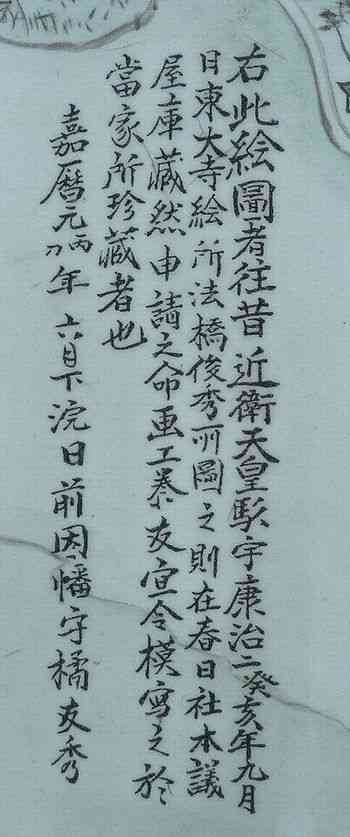 右此絵圖者往昔近衛天皇馭宇康治二癸亥年九月
日東大寺絵所法橋俊秀所圖之則在春日社本議
屋庫藏然申請之命画工秦友宣令模寫之於
當家所珍藏者也
嘉暦元丙刀年六月下浣日前因幡守橘友秀